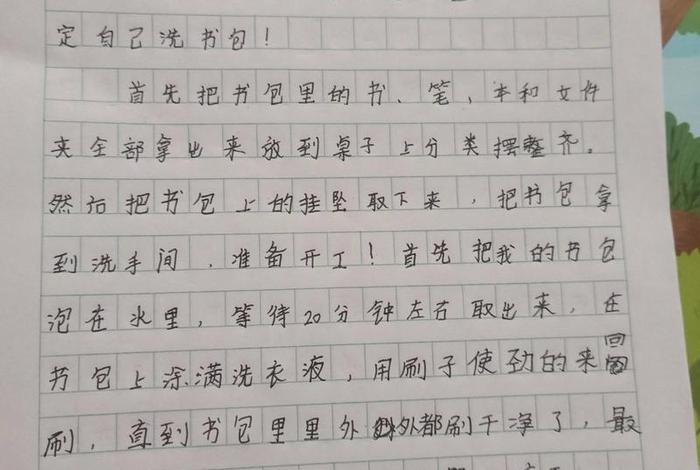 定自己洗书包！
首先把书包里的书、笔，本和文件
夹全部拿出来放到桌子上分类摆整齐。
然后把书包上的挂坠取下来，把书包拿
到洗手间，准备开工！首先把我的书包
泡在水里，等待20分钟左右取出来，在
书包上涂满洗衣液，用刷子使劲的来回
刷，直到书包里里外外都刷干净了，最